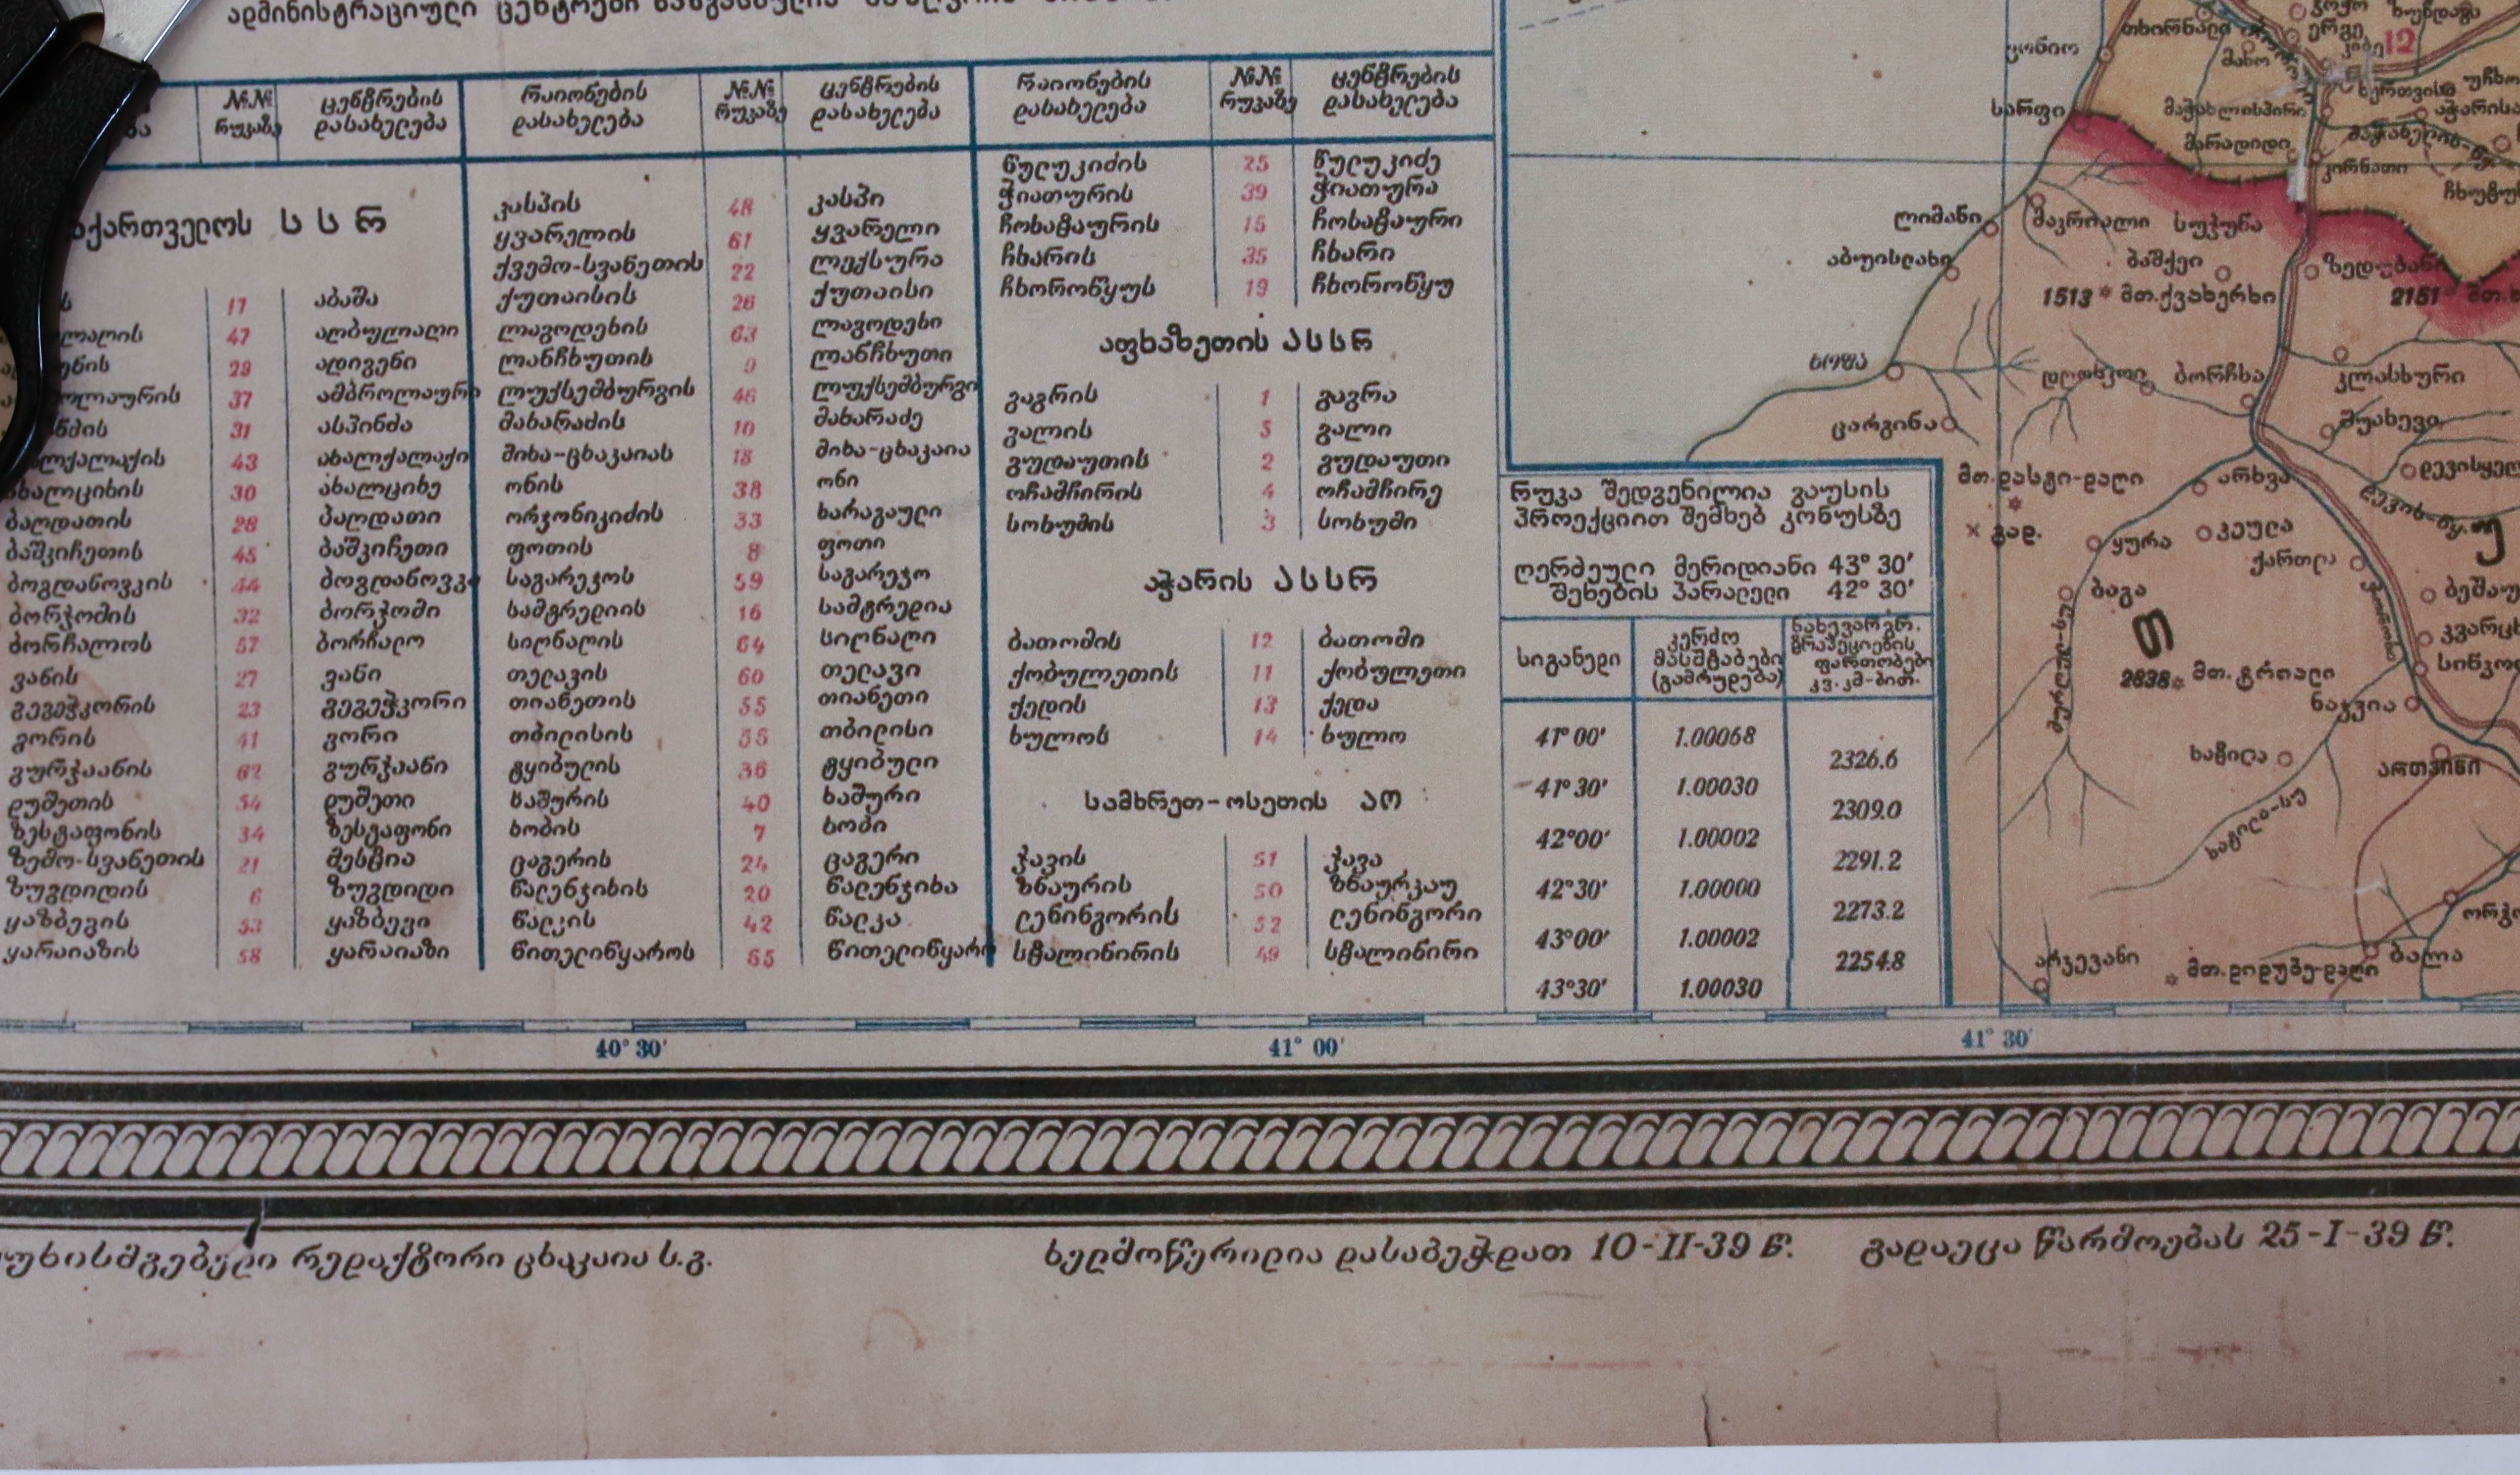 ადმინისტრაციული ცენტრები
№№ რუკაზე
ცენტრების დასახელება
რაიონების დასახელება
№№ რუკაზე
ცენტრების დასახელება
რაიონების დასახელება
№№ რუკაზე
ცენტრების დასახელება
სსრ
17 აბაშა
47 აღბულაღი
29 ადიგენი
37 ამბროლაური
31 ასპინძა
43 ახალქალაქი
30 ახალციხე
ბაღდათის 28 ბაღდათი
ბაშკიჩეთის 45 ბაშკიჩეთი
ბოგდანოვკის 44 ბოგდანოვკა
ბორჯომის 32 ბორჯომი
ბორჩალოს 57 ბორჩალო
ვანის 27 ვანი
გეგეჭკორის 23 გეგეჭკორი
გორის 41 გორი
გურჯაანის 62 გურჯაანი
დუშეთის 54 დუშეთი
ზესტაფონის 34 ზესტაფონი
ზემო-სვანეთის 21 მესტია
ზუგდიდის 6 ზუგდიდი
ყაზბეგის 53 ყაზბეგი
ყარაიაზის 58 ყარაიაზი
კასპის 48 კასპი
ყვარელის 61 ყვარელი
ქვემო-სვანეთის 22 ლექსურა
ქუთაისის 26 ქუთაისი
ლაგოდეხის 63 ლაგოდეხი
ლანჩხუთის 9 ლანჩხუთი
ლუქსემბურგის 46 ლუქსემბურგი
მახარაძის 10 მახარაძე
მიხა-ცხაკაიას 18 მიხა-ცხაკაია
ონის 38 ონი
ორჯონიკიძის 33 ხარაგაული
ფოთის 8 ფოთი
საგარეჯოს 59 საგარეჯო
სამტრედიის 16 სამტრედია
სიღნაღის 64 სიღნაღი
თელავის 60 თელავი
თიანეთის 55 თიანეთი
თბილისის 55 თბილისი
ტყიბულის 36 ტყიბული
ხაშურის 40 ხაშური
ხობის 7 ხობი
ცაგერის 24 ცაგერი
წალენჯიხის 20 წალენჯიხა
წალკის 42 წალკა
წითელიწყაროს 65 წითელიწყარო
წულუკიძის 25 წულუკიძე
ჭიათურის 39 ჭიათურა
ჩოხატაურის 15 ჩოხატაური
ჩხარის 35 ჩხარი
ჩხოროწყუს 19 ჩხოროწყუ
აფხაზეთის ასსრ
გაგრის 1 გაგრა
გალის 5 გალი
გუდაუთის 2 გუდაუთი
ოჩამჩირის 4 ოჩამჩირე
სოხუმის 3 სოხუმი
აჭარის ასსრ
ბათომის 12 ბათომი
ქობულეთის 11 ქობულეთი
ქედის 13 ქედა
ხულოს 14 ხულო
სამხრეთ-ოსეთის აო
ჯავის 51 ჯავა
ზნაურის 50 ზნაურკაუ
ლენინგორის 52 ლენინგორი
სტალინირის 49 სტალინირი
რუკა შედგენილია გაუსის
პროექციით შემხებ კონუსზე
ღერძეული მერიდიანი 43° 30′
შეხების პარალელი 42° 30′
სიგანედი
კერძო მასშტაბები (გამრუდება)
ნახევარგრ. ტრაპეციების ფართობები კვ. კმ-ბით.
41° 00′ 1.00068
2326.6
41° 30′ 1.00030
2309.0
42° 00′ 1.00002
2291.2
42° 30′ 1.00000
2273.2
43° 00′ 1.00002
2254.8
43° 30′ 1.00030
გონიო
თხირნალი
ერგე
12
მახო
სარფი
მაჭახლისპირი
მარადიდი
კირნათი
ლიმანი
მაკრიალი
სუჯუნა
აბუისლახი
ბაშქეი
ზედუბანი
1513 მთ.ქვახერხი
2151
ხოფა
ბორჩხა
კლასხური
ცარგინა
მუახევი
მთ.დასტი-დაღი
არხვა
გად.
ყურა
კეულა
ქართლა
ბაგა
თ
მურღულ-სუ
2838 მთ. ტრიალი
ნაჯვია
ხატილა
ართვინი
ხატილა-სუ
არკევანი
მთ.დიდუბე-დაღი
ბალა
40° 30′
41° 00′
41° 30′
რედაქტორი ცხაკაია ს.გ.
ხელმოწერილია დასაბეჭდათ 10-II-39 წ.
გადაეცა წარმოებას 25-I-39 წ.